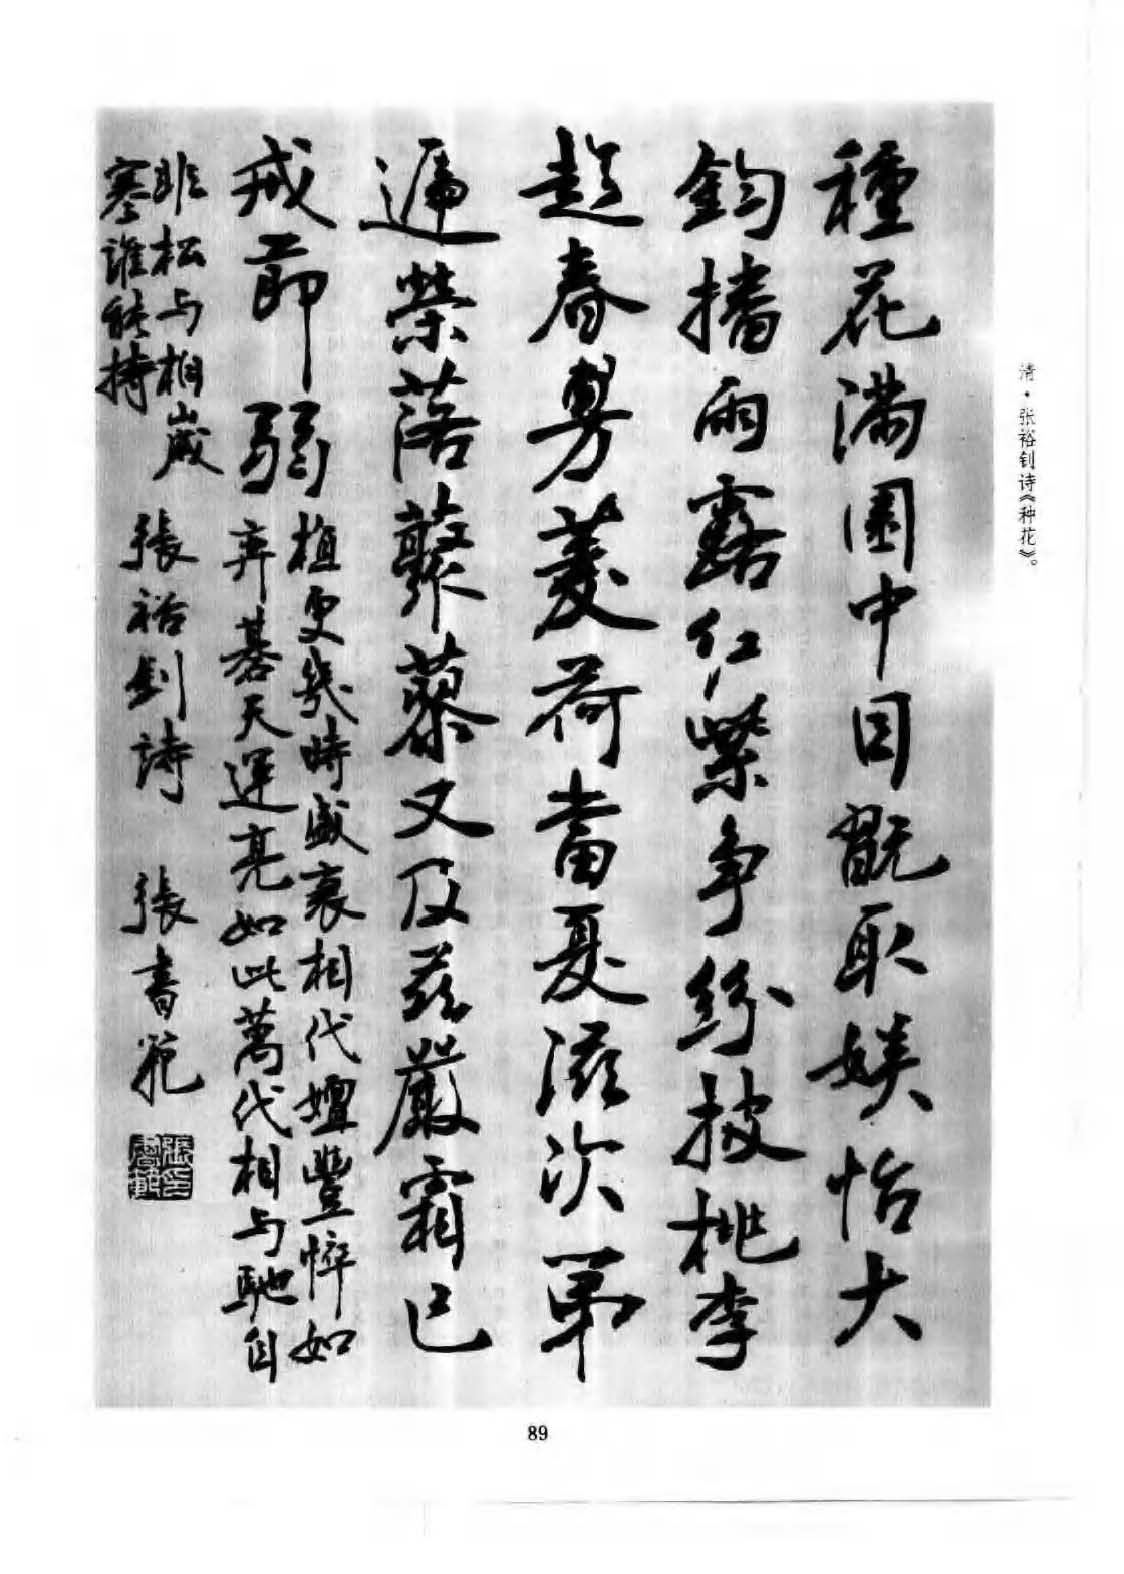 種花滿園中日翫取娛怡大
鈞播雨露紅紫爭紛披桃李
趁春專菱荷當夏滋次第
遞榮落蕣藜又及茲嚴霜已
戒節弱植更幾時盛衰相代嬗豐悴如
弈棊天運亮如此萬代相与馳自
非松与柏歲
寒誰能持
張裕釗詩 張書範
張書範印
清·张裕钊诗《种花》。
89